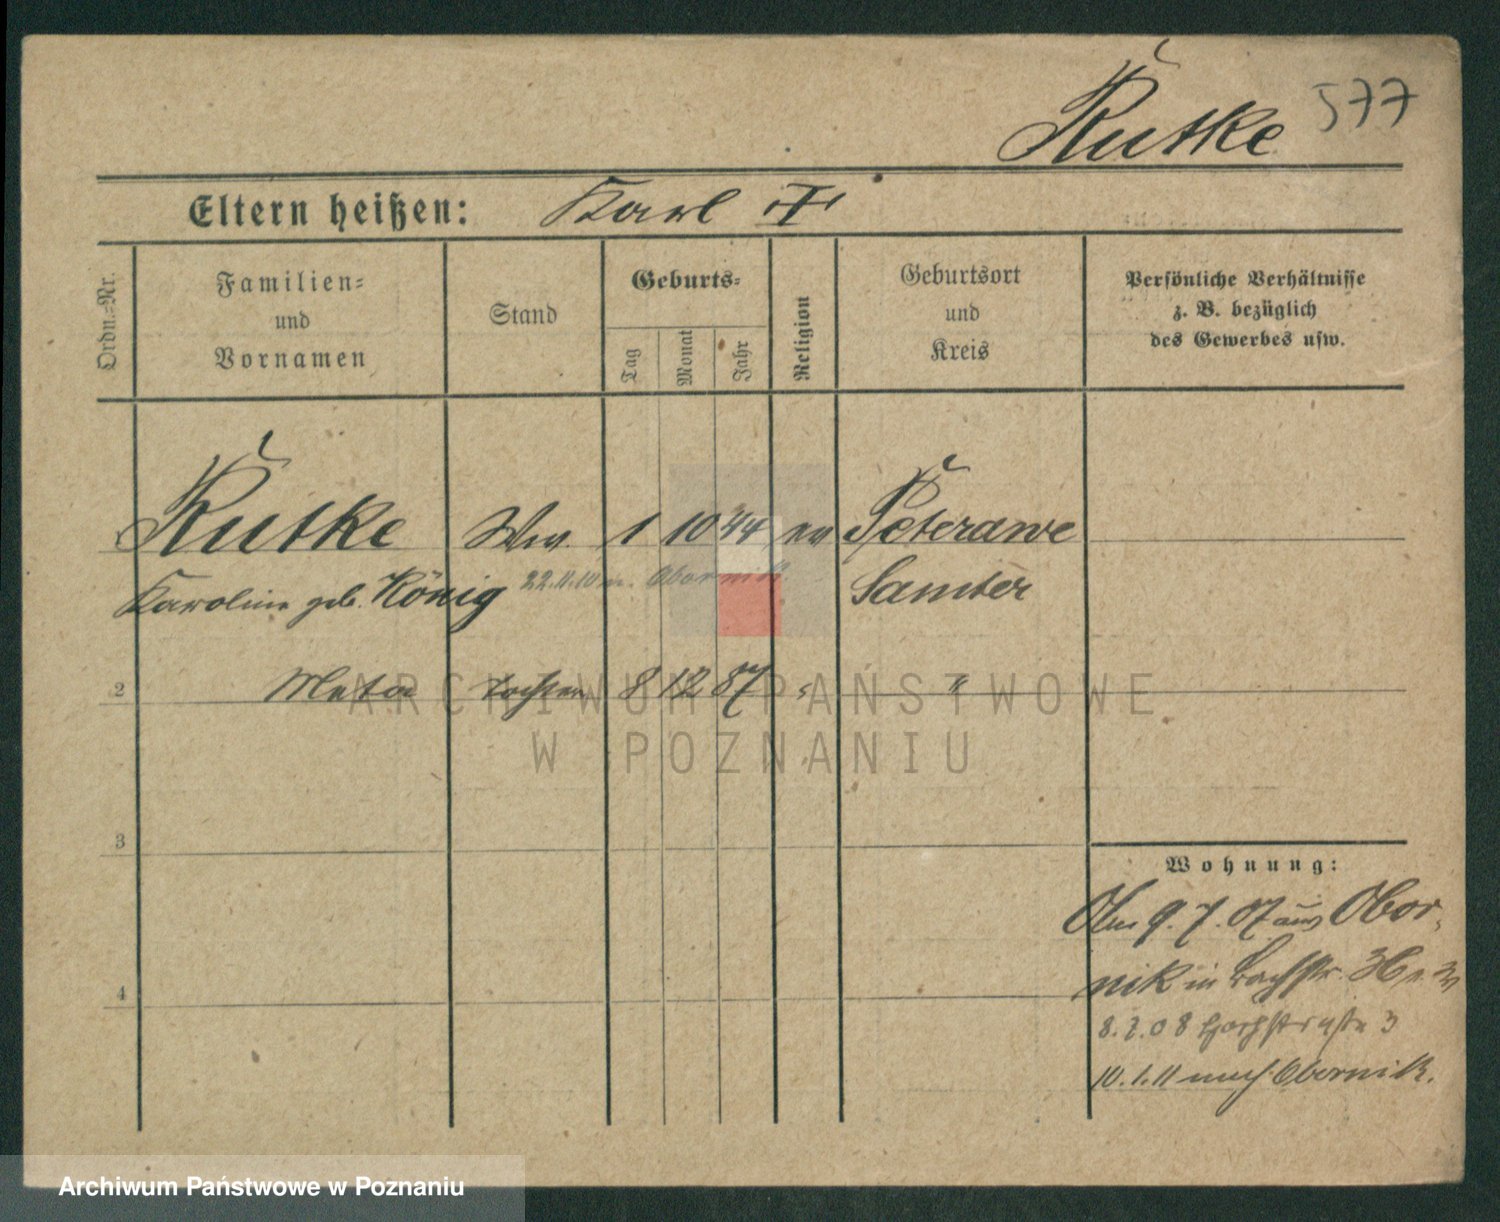 Rutke 577
Eltern heißen: Karl
Ordn.=Nr.
Familien=
und
Vornamen
Stand
Geburts=
Tag
Monat
Jahr
Religion
Geburtsort
und
Kreis
Persönliche Verhältnisse
z. B. bezüglich
des Gewerbes usw.
Rutke Ww. 1 10 44 ev Peterawe
Karoline geb. König 22.11.10 n. Obornik. Samter
2 Meta Tochter 8 12 87 " "
ARCHIWUM PAŃSTWOWE
W POZNANIU
3
Wohnung:
9.7.07 aus Obor-
nik in Bachstr. 36
4
8.2.08 Hochstraße 3
10.1.11 nach Obornik.
Archiwum Państwowe w Poznaniu